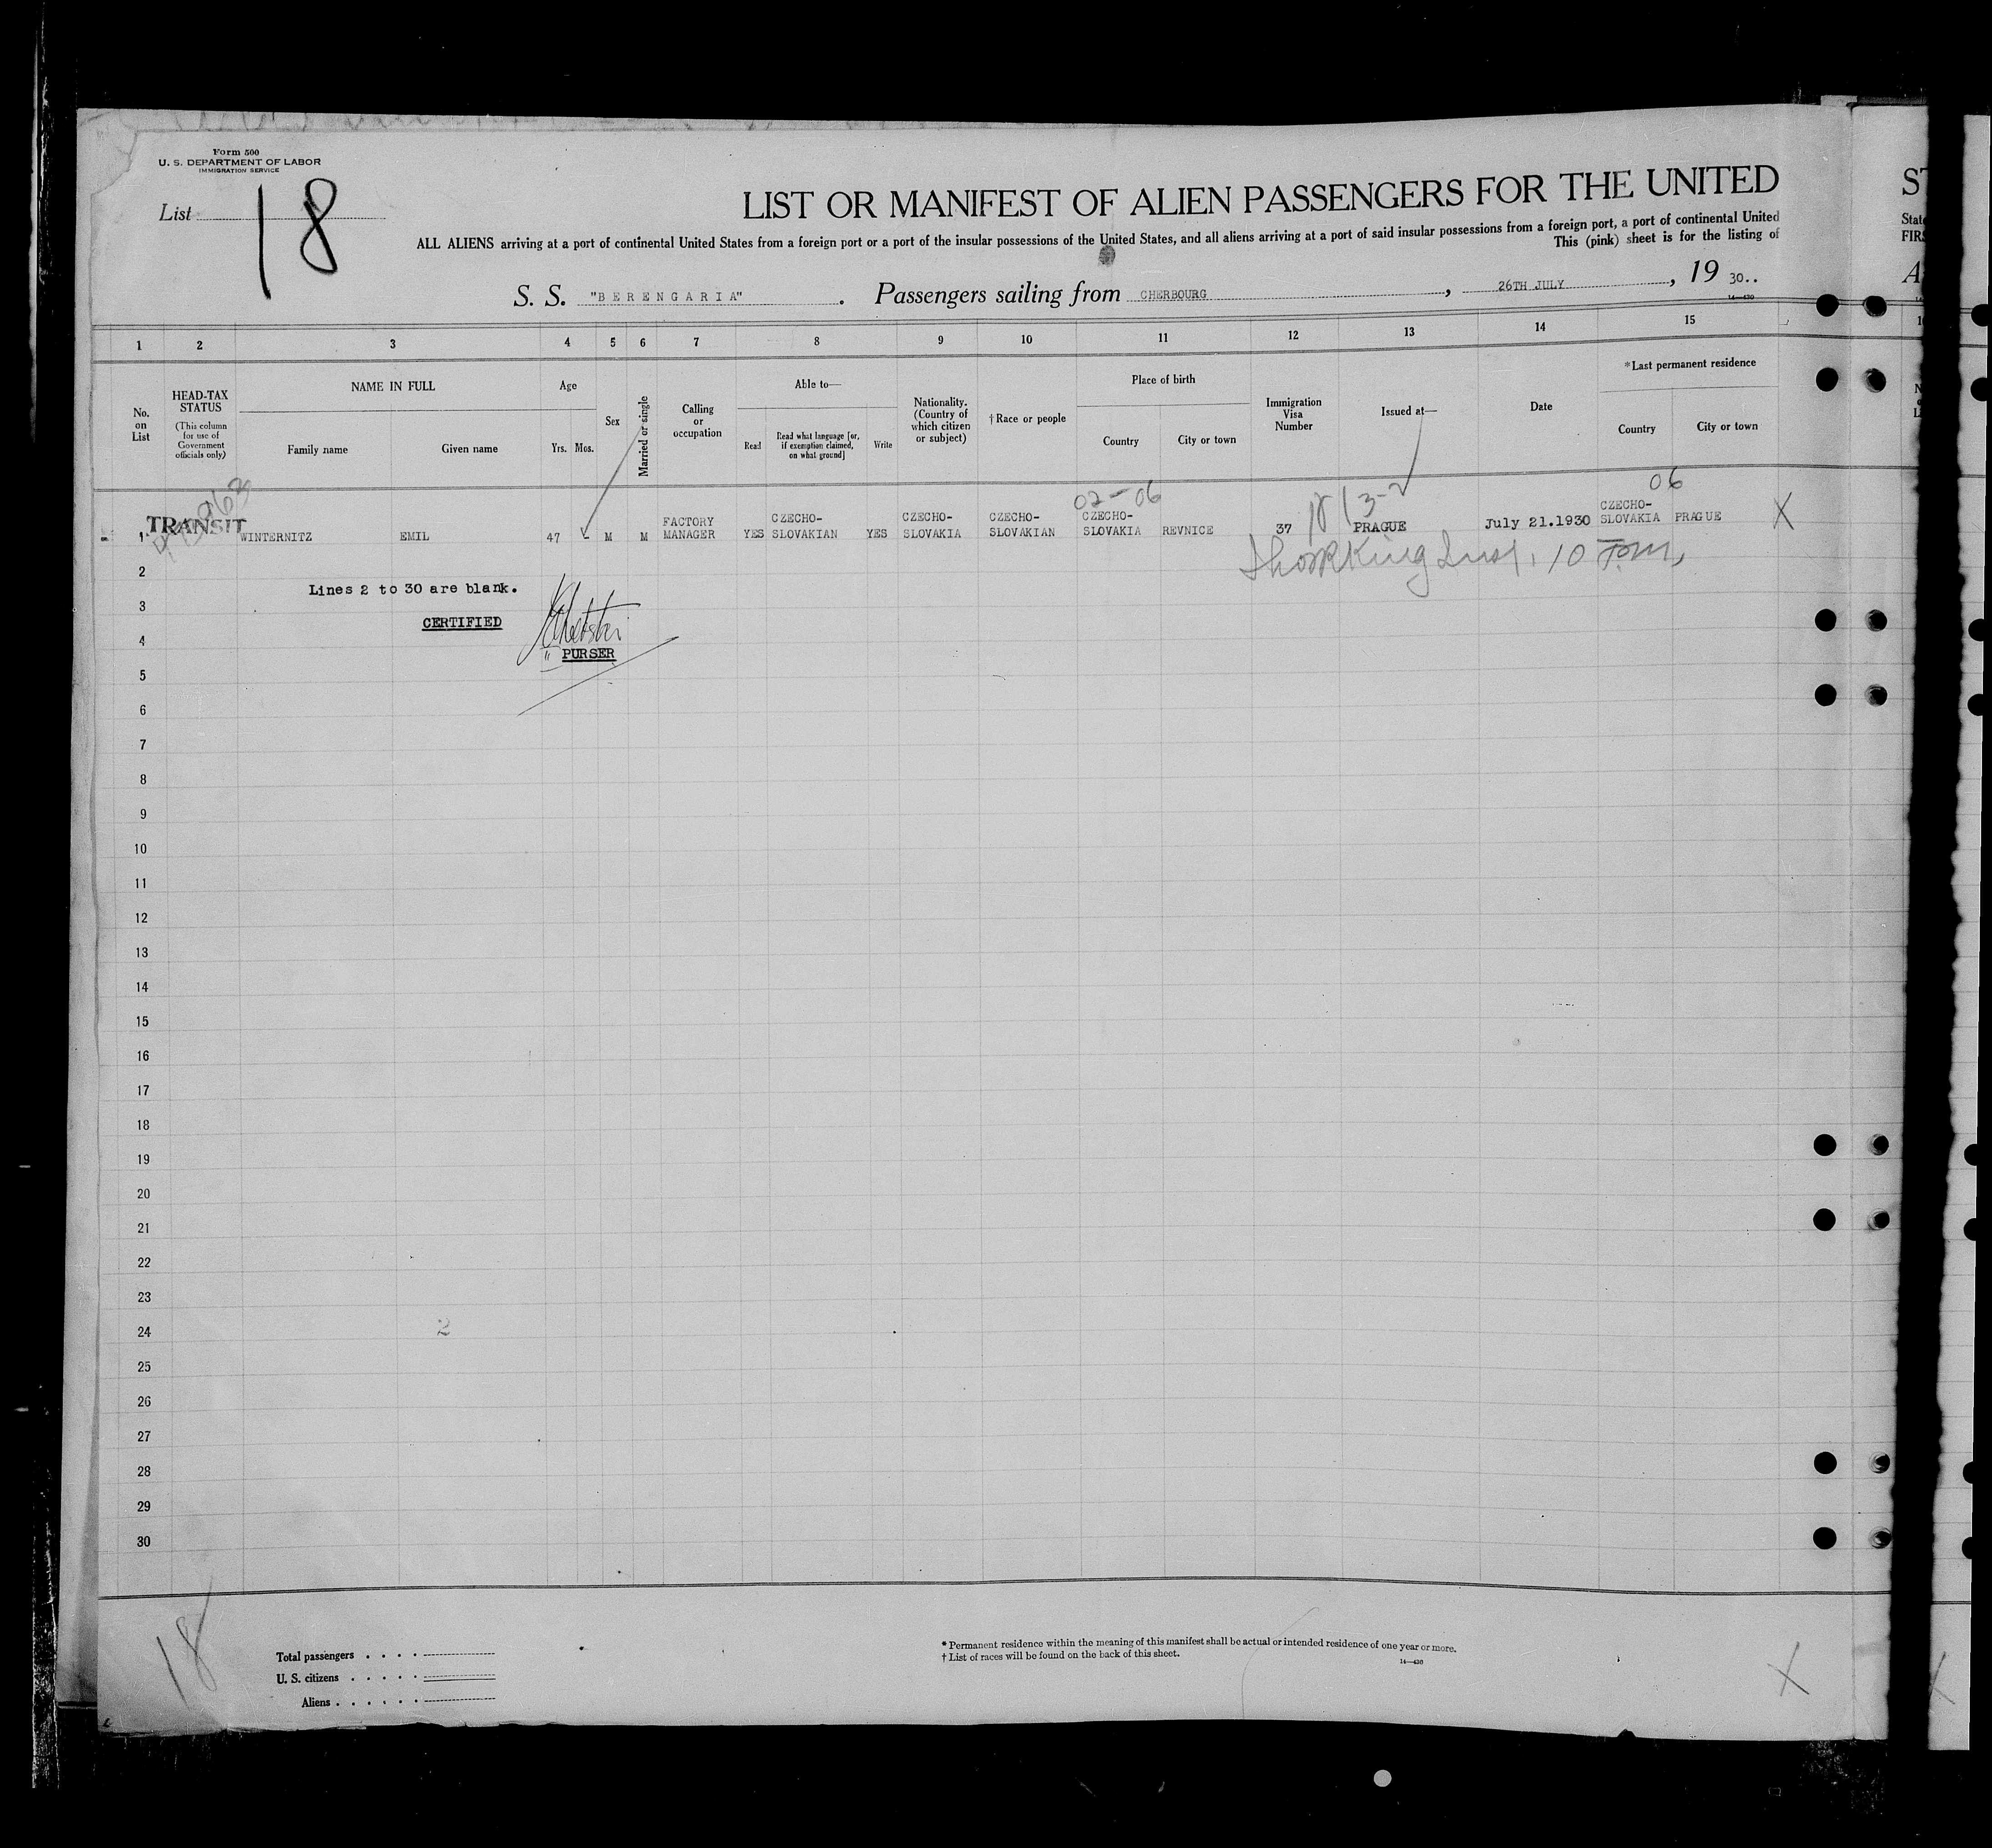 Form 500
U. S. DEPARTMENT OF LABOR
IMMIGRATION SERVICE
List 18
LIST OR MANIFEST OF ALIEN PASSENGERS FOR THE UNITED
ST
ALL ALIENS arriving at a port of continental United States from a foreign port or a port of the insular possessions of the United States, and all aliens arriving at a port of said insular possessions from a foreign port, a port of continental United
This (pink) sheet is for the listing of
FIR
S. S. "BERENGARIA". Passengers sailing from CHERBOURG, 26TH JULY, 19 30..
1 2 3 4 5 6 7 8 9 10 11 12 13 14 15
No. on List
HEAD-TAX STATUS
(This column for use of Government officials only)
NAME IN FULL
Family name Given name
Age
Yrs. Mos.
Sex
Married or single
Calling or occupation
Able to—
Read Read what language [or, if exemption claimed, on what ground] Write
Nationality. (Country of which citizen or subject)
†Race or people
Place of birth
Country City or town
Immigration Visa Number
Issued at—
Date
*Last permanent residence
Country City or town
02-06
06
TRANSIT
1 WINTERNITZ EMIL 47 - M M FACTORY MANAGER YES CZECHO-SLOVAKIAN YES CZECHO-SLOVAKIA CZECHO-SLOVAKIAN CZECHO-SLOVAKIA REVNICE 37 PRAGUE July 21.1930 CZECHO-SLOVAKIA PRAGUE X
2
Lines 2 to 30 are blank.
3
CERTIFIED
4
" PURSER
5
6
7
8
9
10
11
12
13
14
15
16
17
18
19
20
21
22
23
24
2
25
26
27
28
29
30
18
Total passengers . . . .
U. S. citizens . . . . .
Aliens . . . . . .
* Permanent residence within the meaning of this manifest shall be actual or intended residence of one year or more.
† List of races will be found on the back of this sheet.
14—430
X